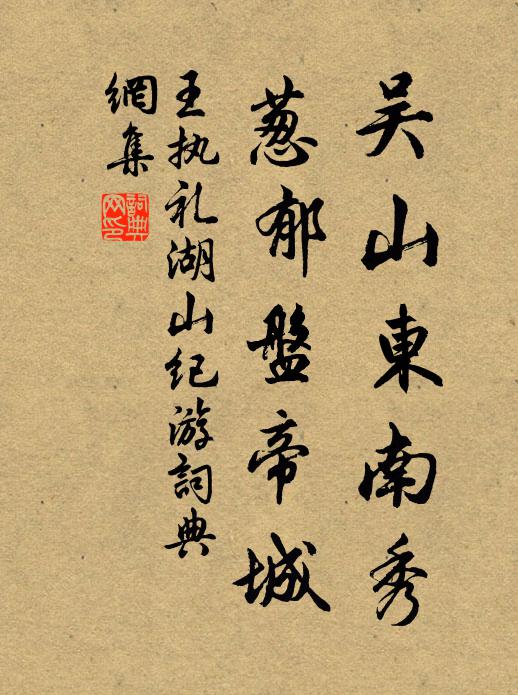 吴山東南秀
葱郁盤帝城
王执礼湖山纪游詞典
網集
詞典
网印